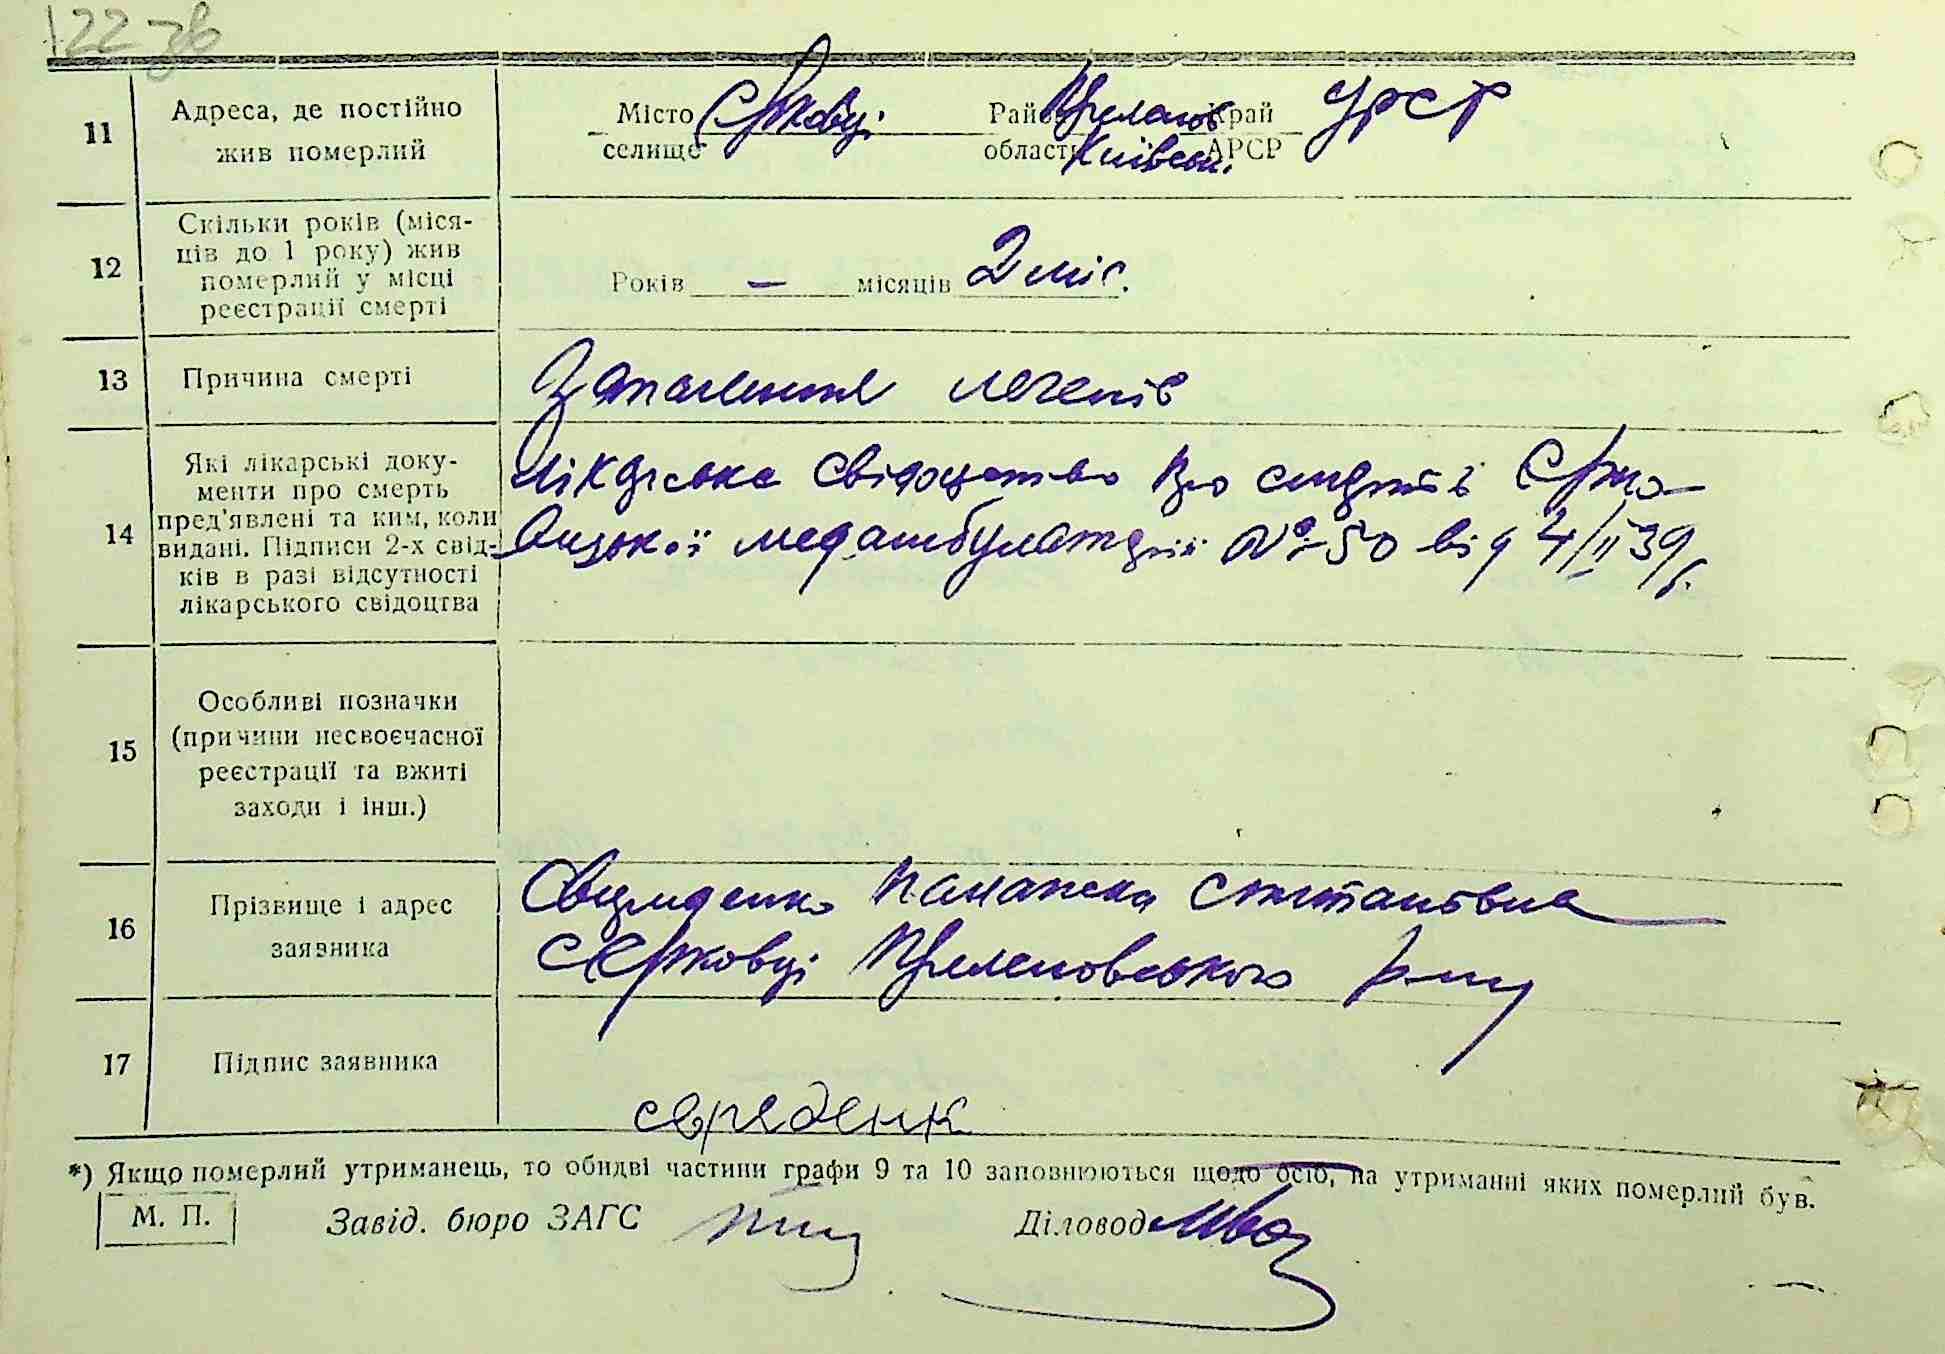 122 зв
11 Адреса, де постійно жив померлий
Місто селище Єрковці Район Край УРСР
області Київськ. АРСР
12 Скільки років (міся-
ців до 1 року) жив
померлий у місці
реєстрації смерті
Років — місяців 2 міс.
13 Причина смерті Запалення легенів
14 Які лікарські доку-
менти про смерть
пред'явлені та ким, коли
видані. Підписи 2-х свід-
ків в разі відсутності
лікарського свідоцтва
Лікарське свідоцтво про смерть Єрко-
вицької медамбулаторії № 50 від 4/II 39 р.
15 Особливі позначки
(причини несвоєчасної
реєстрації та вжиті
заходи і інш.)
16 Прізвище і адрес
заявника
Степановна
с Єрковці району
17 Підпис заявника
*) Якщо померлий утриманець, то обидві частини графи 9 та 10 заповнюються щодо осіб, на утриманні яких померлий був.
М. П. Завід. бюро ЗАГС Діловод